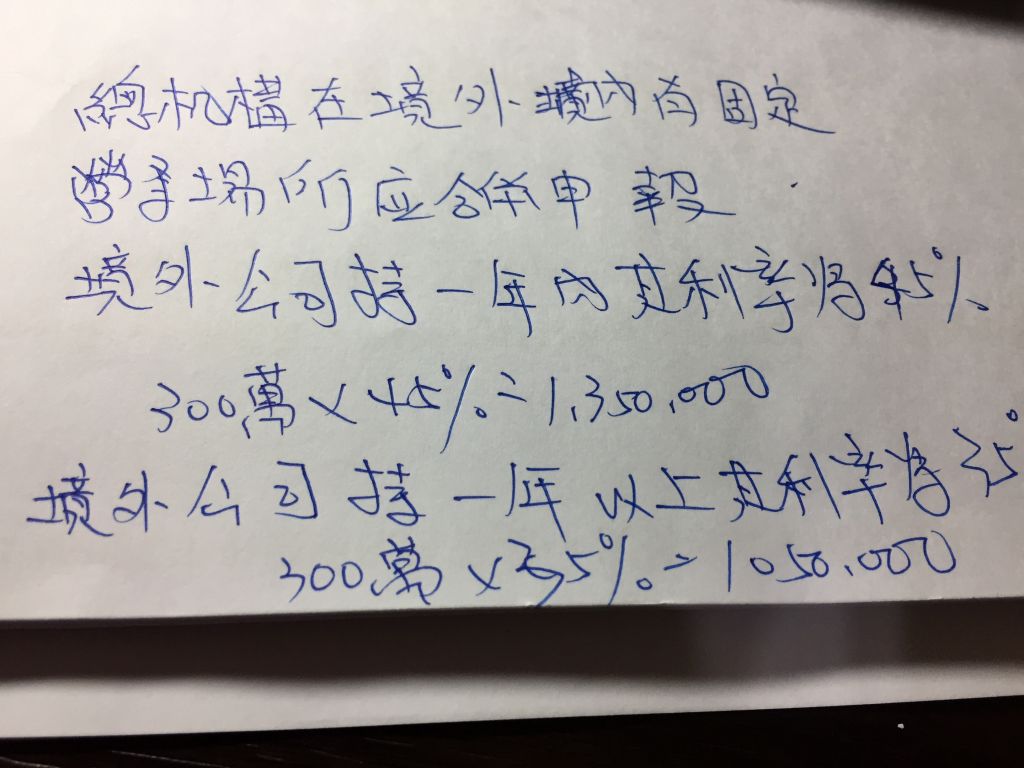 總机構在境外境內有固定
營業場所应合併申報
境外公司持一年內其利率將45%
300萬×45%=1,350,000
境外公司持一年以上其利率將35%
300萬×35%=1050,000